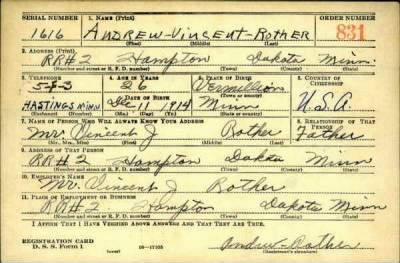 SERIAL NUMBER 1. NAME (Print) ORDER NUMBER
1616 ANDREW-VINCENT-ROTHER 831
(First) (Middle) (Last)
2. ADDRESS (Print)
RR#2 Hampton Dakota Minn.
(Number and street or R. F. D. number) (Town) (County) (State)
3. TELEPHONE 4. AGE IN YEARS 5. PLACE OF BIRTH 6. COUNTRY OF CITIZENSHIP
5-F-3 26 Vermillion
DATE OF BIRTH (Town or county) U.S.A.
HASTINGS MINN 11 1914 Minn
(Exchange) (Number) (Mo.) (Day) (Yr.) (State or country)
7. NAME OF PERSON WHO WILL ALWAYS KNOW YOUR ADDRESS 8. RELATIONSHIP OF THAT PERSON
Mr. Vincent J Rother Father
(Mr., Mrs., Miss) (First) (Middle) (Last)
9. ADDRESS OF THAT PERSON
RR#2 Hampton Dakota Minn
(Number and street or R. F. D. number) (Town) (County) (State)
10. EMPLOYER'S NAME
Mr. Vincent J Rother
11. PLACE OF EMPLOYMENT OR BUSINESS
RR#2. Hampton Dakota Minn
(Number and street or R. F. D. number) (Town) (County) (State)
I AFFIRM THAT I HAVE VERIFIED ABOVE ANSWERS AND THAT THEY ARE TRUE.
REGISTRATION CARD
D. S. S. FORM 1 16—17105 Andrew-Rother
(Registrant's signature)